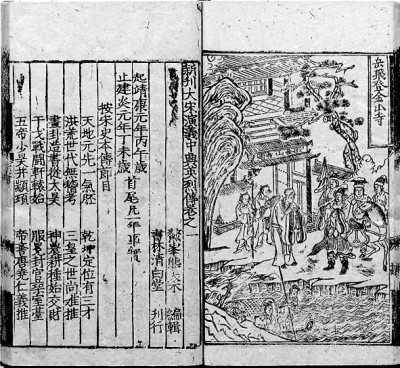 岳飛登金山寺
新刊大宋演義中興英烈傳卷之一
鰲峯熊大木 編輯
書林清白堂 刊行
起靖康元年丙午歲
止建炎元年丁未歲 首尾凡一年事實
按宋史本傳節目
天地元先一氣胚 乾坤定位有三才
洪荒世代無稽考 三皇之世尚難推
畫卦造書從太昊 神農耕種始交財
干戈戰鬪軒轅始 服冕封官室臺
五帝少昊并顓頊 帝嚳唐堯仁義推